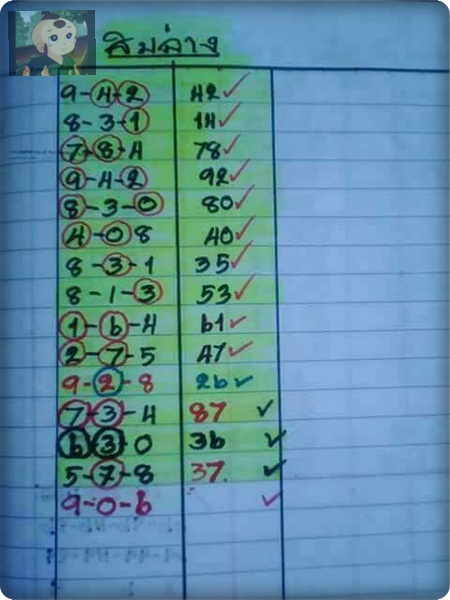 สิบล่าง
9-4-2 42✓
8-3-1 14✓
7-8-4 78✓
9-4-2 92✓
8-3-0 80✓
4-0 8 40✓
8-3-1 35✓
8-1-3 53✓
1-6-4 61✓
2-7-5 47✓
9-2-8 26✓
7-3-4 87 ✓
6 3-0 36 ✓
5-7-8 37. ✓
9-0-6 ✓